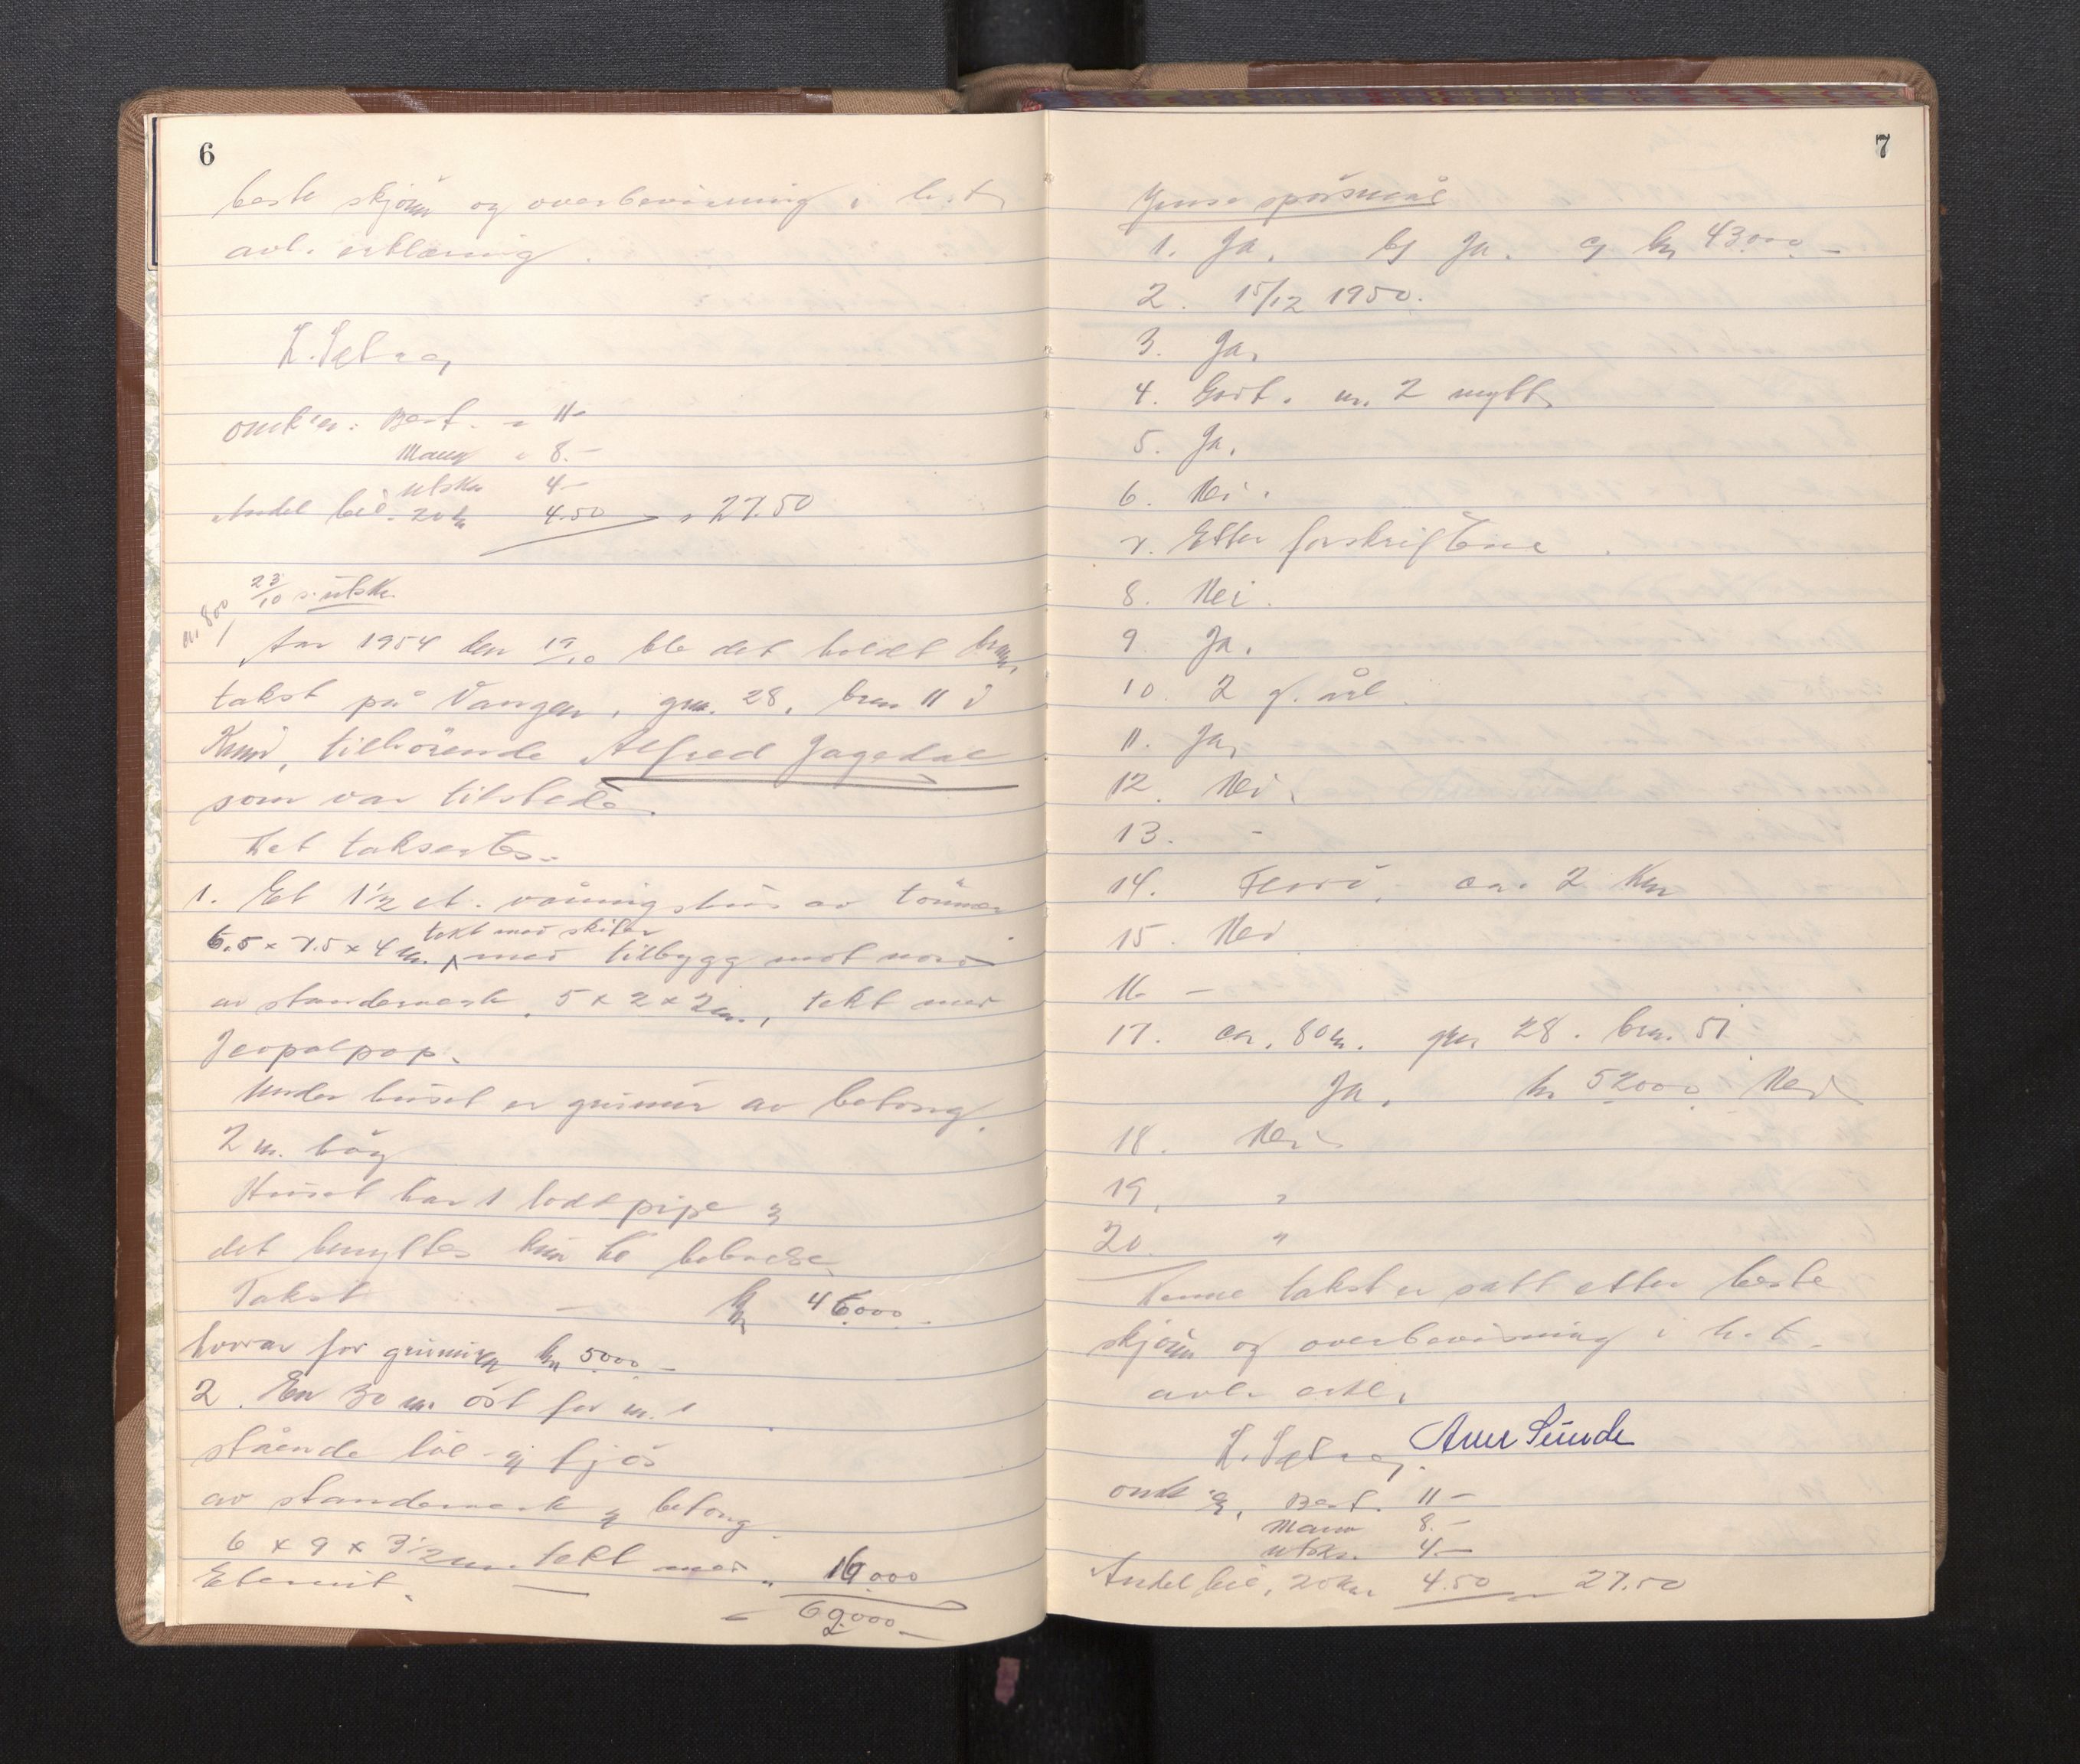 6
beste skjønn og overbevisning i h.t.
avl. erklæring.
omk'er: Best. - 11-
8.-
utskr 4-
Andel bil. 20 k 4.50 27.50
23/10 s. utskr.
Aar 1954 den 19/10 ble det holdt brann
takst på Vangen, gnr. 28, brn 11 i
Kinn, tilhørende Alfred Jagedal
som var tilstede.
Det taksertes.
1. Et 1 1/2 et. våningshus av tømmer
tekt med skifer
6.5 x 7.5 x 4 m. med tilbygg mot nord
av standerverk, 5 x 2 x 2 m., tekt med
Under huset er grunnmur av betong
2 m. høg
Huset har 1 lodd pipe og
det benyttes kun til beboelse
Takst - kr 46000.-
hvorav for grunnmuren kr 5000.-
2. En 30 m. øst for nr. 1
stående løe og fjøs
av standerverk og betong
6 x 9 x 3 1/2 m. tekt med " 16000
Eternit. -
62000.-
7
spørsmål
1. Ja. b) Ja. c) kr 43000.-
2. 15/12 1950.
3. Ja.
4. Godt. m. 2 nytt
5. Ja.
6. Nei.
7. Etter forskriftene.
8. Nei.
9. Ja.
10. 2 g. årl.
11. Ja.
12. Nei.
13. -
14. Florø, ca. 2 km
15. Nei
16. -
17. ca. 80 m. gnr 28. brn. 51
Ja. kr 52000. Nei
18. Nei
19. "
20. "
Denne takst er satt etter beste
skjønn og overbevisning i h.t.
avl. erkl.
Sunde
omk Best. 11-
8.-
utskr. 4-
Andel bil, 20 km 4.50 27.50